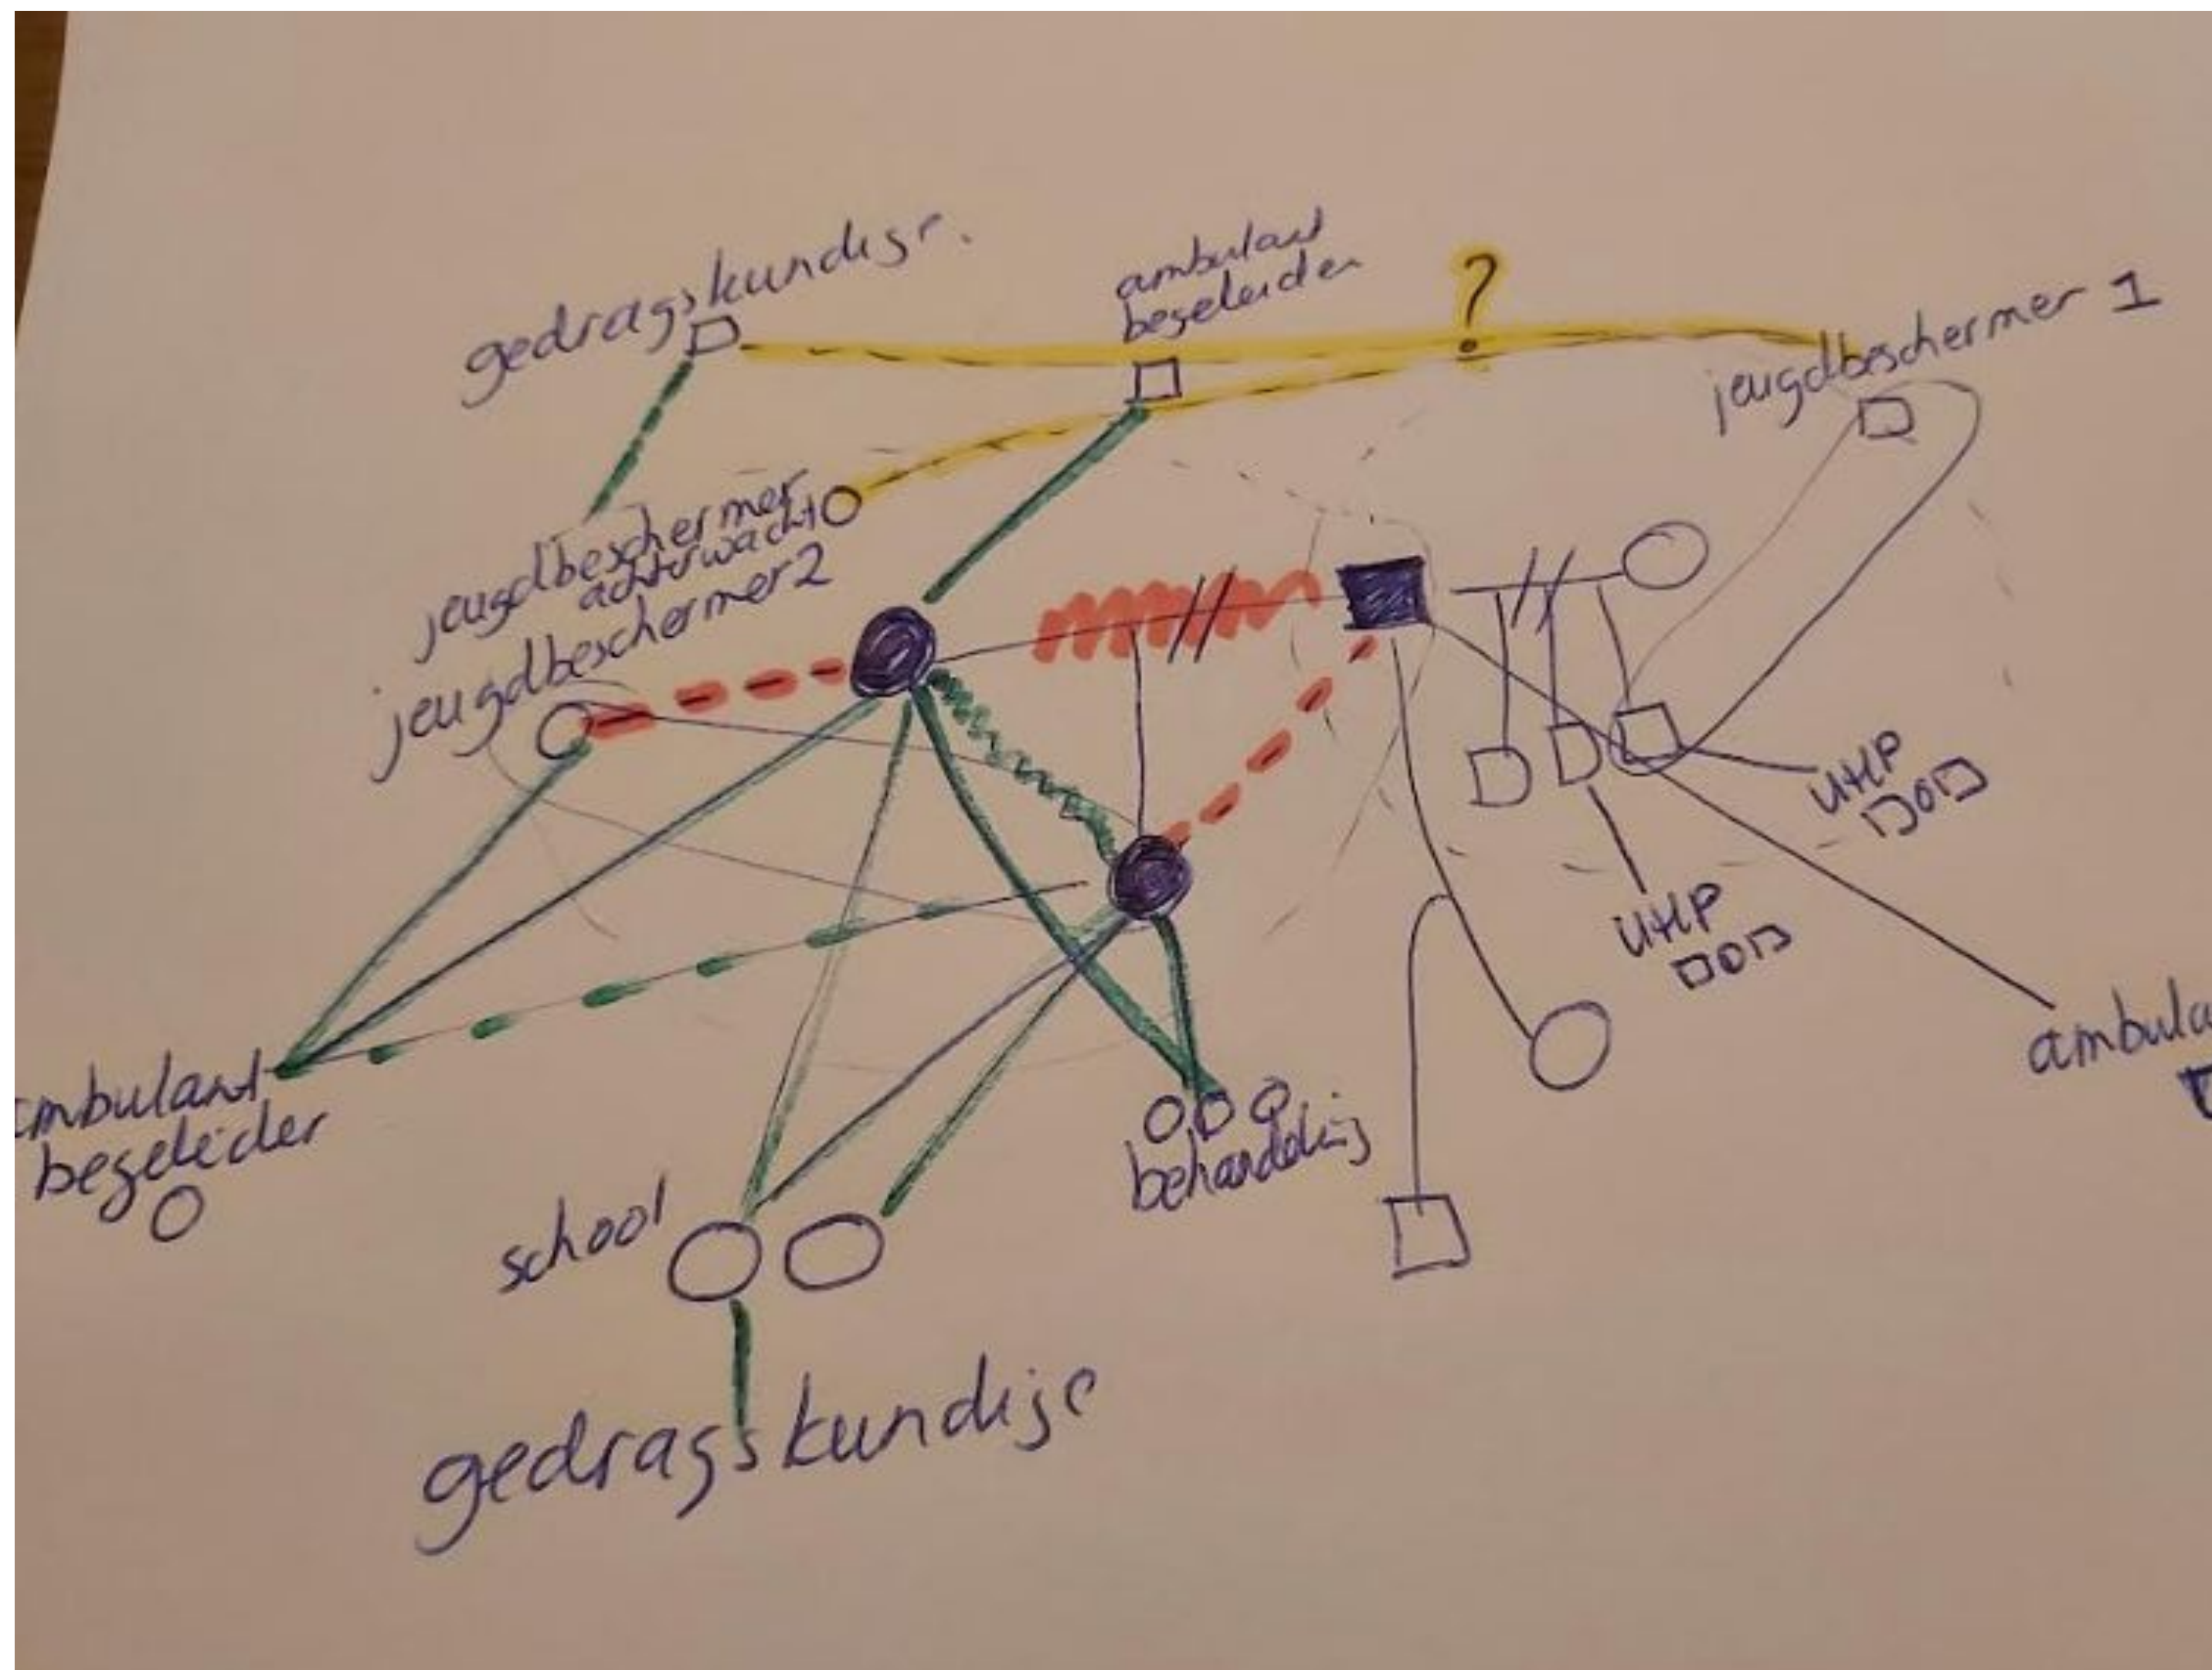 gedragskundige
ambulant
begeleider
?
jeugdbeschermer 1
jeugdbeschermer
achterwacht
jeugdbeschermer 2
UHP
UHP
ambula
ambulant
begeleider
school
behandeling
gedragskundige